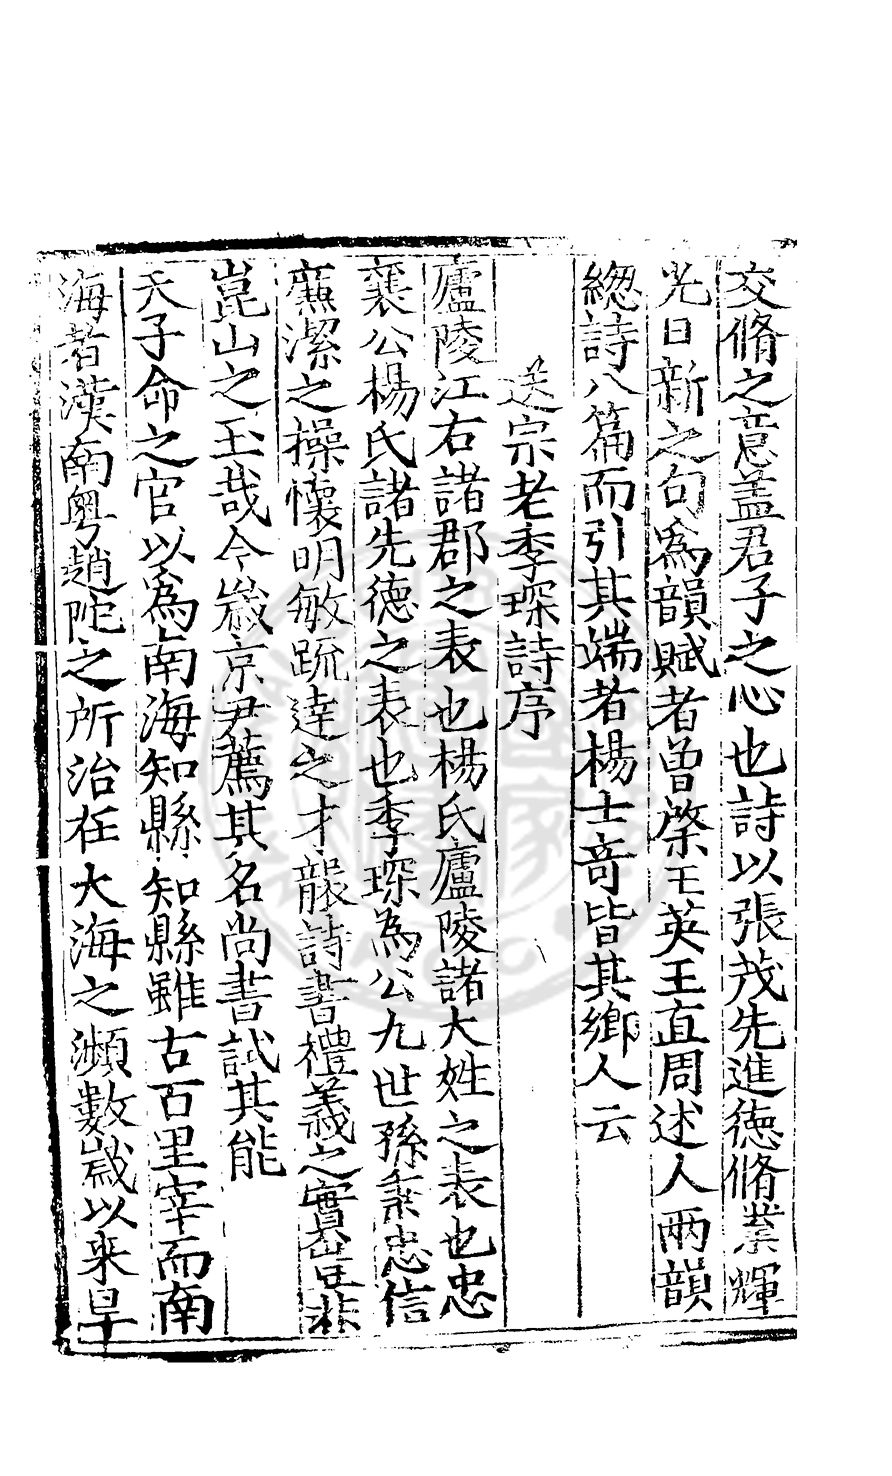 交脩之意蓋君子之心也詩以張茂先進德脩業輝
光日新之句爲韻賦者曾棨王英王直周述人兩韻
緫詩八篇而引其端者楊士竒皆其鄉人云
送宗老季琛詩序
廬陵江右諸郡之表也楊氏廬陵諸大姓之表也忠
襄公楊氏諸先德之表也季琛為公九世孫秉忠信
廉潔之操懷明敏疏達之才服詩書禮義之實豈非
崑山之玉哉今歲京尹薦其名尚書試其能
天子命之官以爲南海知縣知縣雖古百里宰而南
海者漢南粤趙陀之所治在大海之瀕數歲以來旱